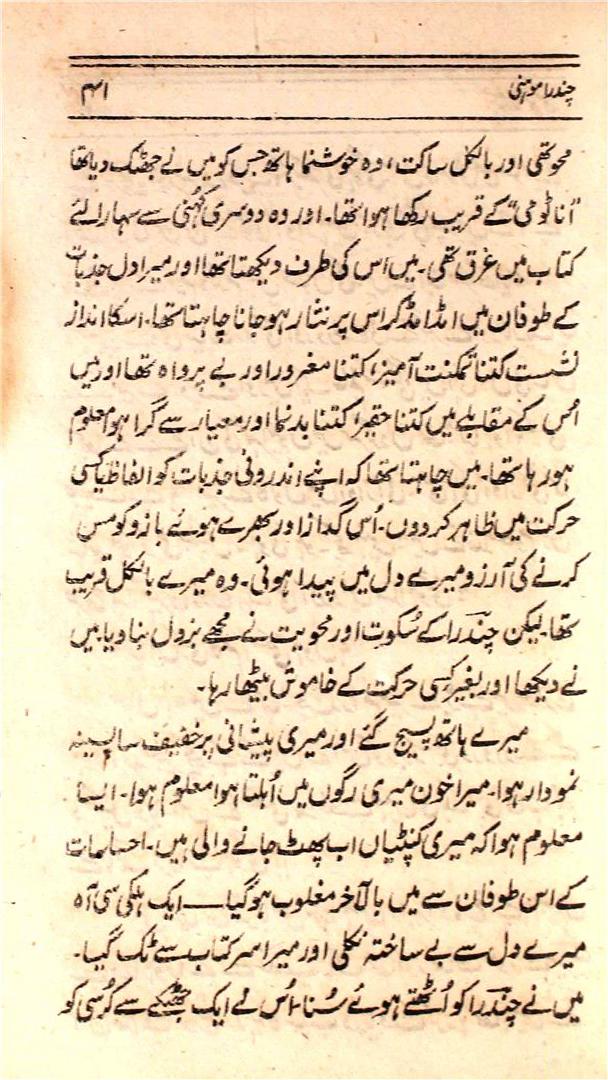 چندرا موہنی
۴۱
محو تھی اور بالکل ساکت، وہ خوشنما ہاتھ جس کو میں نے جھٹک دیا تھا
"اناٹومی" کے قریب رکھا ہوا تھا۔ اور وہ دوسری کہنی سے سہارا لئے
کتاب میں غرق تھی۔ میں اس کی طرف دیکھتا تھا اور میرا دل جذبات
کے طوفان میں امڈ امڈ کر اس پر نثار ہو جانا چاہتا تھا۔ اسکا انداز
نشست کتنا تمکنت آمیز، کتنا مغرور اور بے پرواہ تھا اور میں
اُس کے مقابلے میں کتنا حقیر، کتنا بدنما اور معیار سے گرا ہوا معلوم
ہو رہا تھا۔ میں چاہتا تھا کہ اپنے اندرونی جذبات کو الفاظ یا کسی
حرکت میں ظاہر کردوں۔ اُس گداز اور بھرے ہوئے بازو کو مس
کرنے کی آرزو میرے دل میں پیدا ہوئی۔ وہ میرے بالکل قریب
تھا۔ لیکن چندرا کے سُکوت اور محویت نے مجھے بزدل بنا دیا۔ میں
نے دیکھا اور بغیر کسی حرکت کے خاموش بیٹھا رہا۔
میرے ہاتھ پسیج گئے اور میری پیشانی پر خفیف سا پسینہ
نمودار ہوا۔ میرا خون میری رگوں میں اُبلتا ہوا معلوم ہوا۔ ایسا
معلوم ہوا کہ میری کنپٹیاں اب پھٹ جانے والی ہیں۔ احساسات
کے اس طوفان سے میں بالآخر مغلوب ہوگیا —— ایک ہلکی سی آہ
میرے دل سے بے ساختہ نکلی اور میرا سر کتاب سے ٹک گیا۔
میں نے چندرا کو اُٹھتے ہوئے سُنا۔ اُس نے ایک جھٹکے سے کُرسی کو